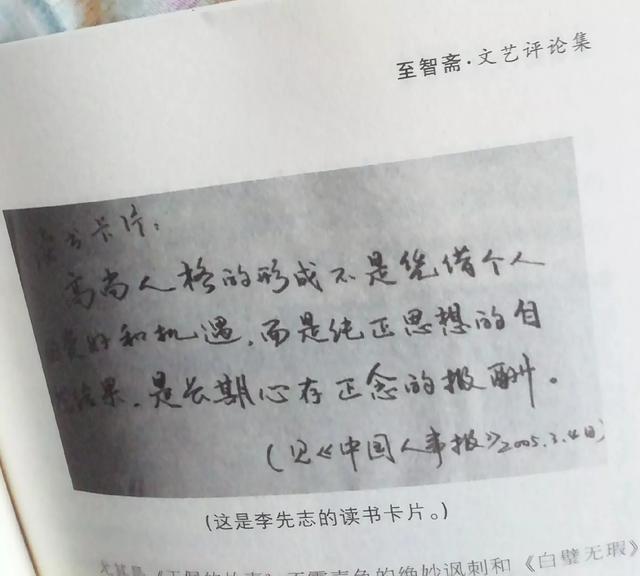 至智斋·文艺评论集
读书卡片：
高尚人格的形成不是凭借个人
爱好和机遇，而是纯正思想的自
结果，是长期心存正念的报酬。
（见《中国人事报》2005.3.4日）
（这是李先志的读书卡片。）
的绝妙讽刺和《白璧无瑕》